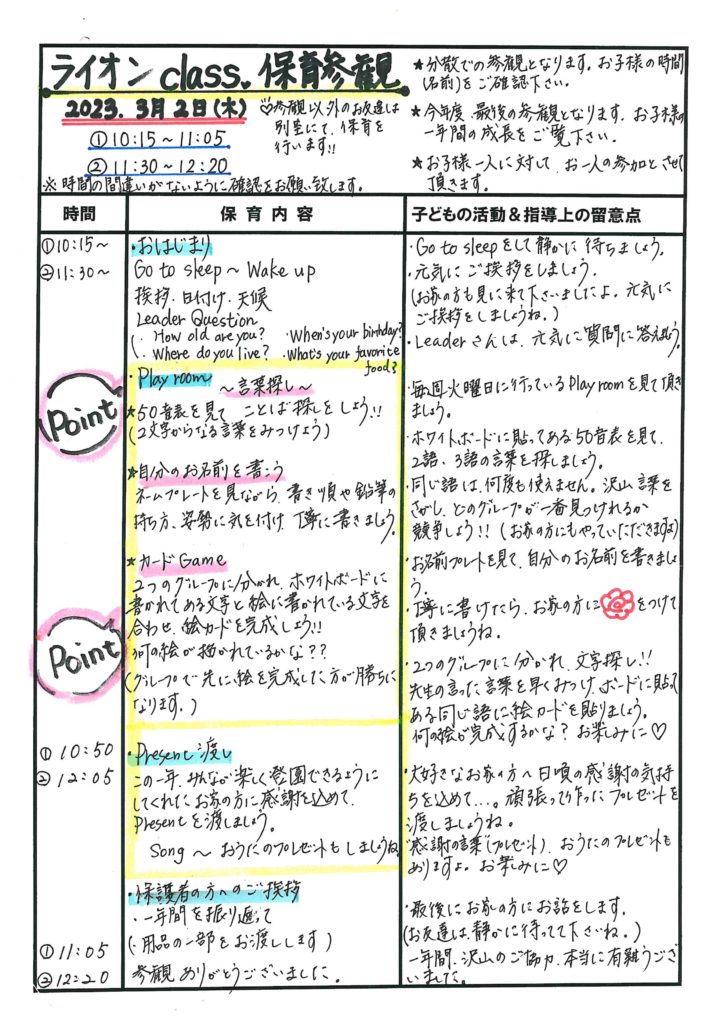 ライオン class. 保育参観
2023. 3月2日(木)
①10:15〜11:05
②11:30〜12:20
※時間の間違いがないように確認をお願い致します。
♡参観以外のお友達は
別室にて、保育を
行います!!
★分散での参観となります。お子様の時間
(名前)をご確認下さい。
★今年度、最後の参観となります。お子様の
一年間の成長をご覧下さい。
★お子様一人に対して、お一人の参加とさせて
頂きます。
時間
保育内容
子どもの活動&指導上の留意点
①10:15〜
②11:30〜
・おはじまり
Go to sleep〜Wake up
挨拶・日付け・天候
Leader Question
(・How old are you? ・When's your birthday?
(・Where do you live? ・What's your favorite
food?
・Go to sleepをして静かに待ちましょう。
・元気にご挨拶をしましょう。
(お家の方も見に来て下さいましたよ。元気に
ご挨拶をしましょうね。)
・Leaderさんは、元気に質問に答えよう。
Point
・Play room
〜言葉探し〜
★50音表を見て ことば探しをしよう!!
(2文字からなる言葉をみつけよう)
★自分のお名前を書こう
ネームプレートを見ながら、書き順や鉛筆の
持ち方、姿勢に気を付け、丁寧に書きましょう。
★カードGame
2つのグループに分かれ、ホワイトボードに
書かれてある文字と絵に書かれている文字を
合わせ、絵カードを完成しよう!!
何の絵が描かれているかな??
(グループで先に絵を完成した方が勝ちに
なります。)
Point
・毎週火曜日に行っているPlay roomを見て頂き
ましょう。
・ホワイトボードに貼ってある50音表を見て、
2語、3語の言葉を探しましょう。
・同じ語は、何度も使えません。沢山言葉を
さがし、どのグループが一番見つけれるか
競争しよう!!(お家の方にもやっていただきますよ)
・お名前プレートを見て、自分のお名前を書きましょ
う。
丁寧に書けたら、お家の方に をつけて
頂きましょうね。
・2つのグループに分かれ、文字探し!!
先生の言った言葉を早くみつけ、ボードに貼って
ある同じ語に絵カードを貼りましょう。
何の絵が完成するかな? お楽しみに♡
①10:50
②12:05
・Present渡し
この一年、みんなが楽しく登園できるように
してくれたお家の方に感謝を込めて、
Presentを渡しましょう。
Song〜おうたのプレゼントもしましょうね
・大好きなお家の方へ日頃の感謝の気持
ちを込めて…。頑張って作ったプレゼントを
渡しましょうね。
感謝の言葉(プレゼント)、おうたのプレゼントも
ありますよ。お楽しみに♡
・保護者の方へのご挨拶
・一年間を振り返って
(・用品の一部をお渡しします)
参観ありがとうございました。
①11:05
②12:20
・最後にお家の方にお話をします。
(お友達は、静かに待ってて下さいね。)
一年間、沢山のご協力、本当に有難うござ
いました。